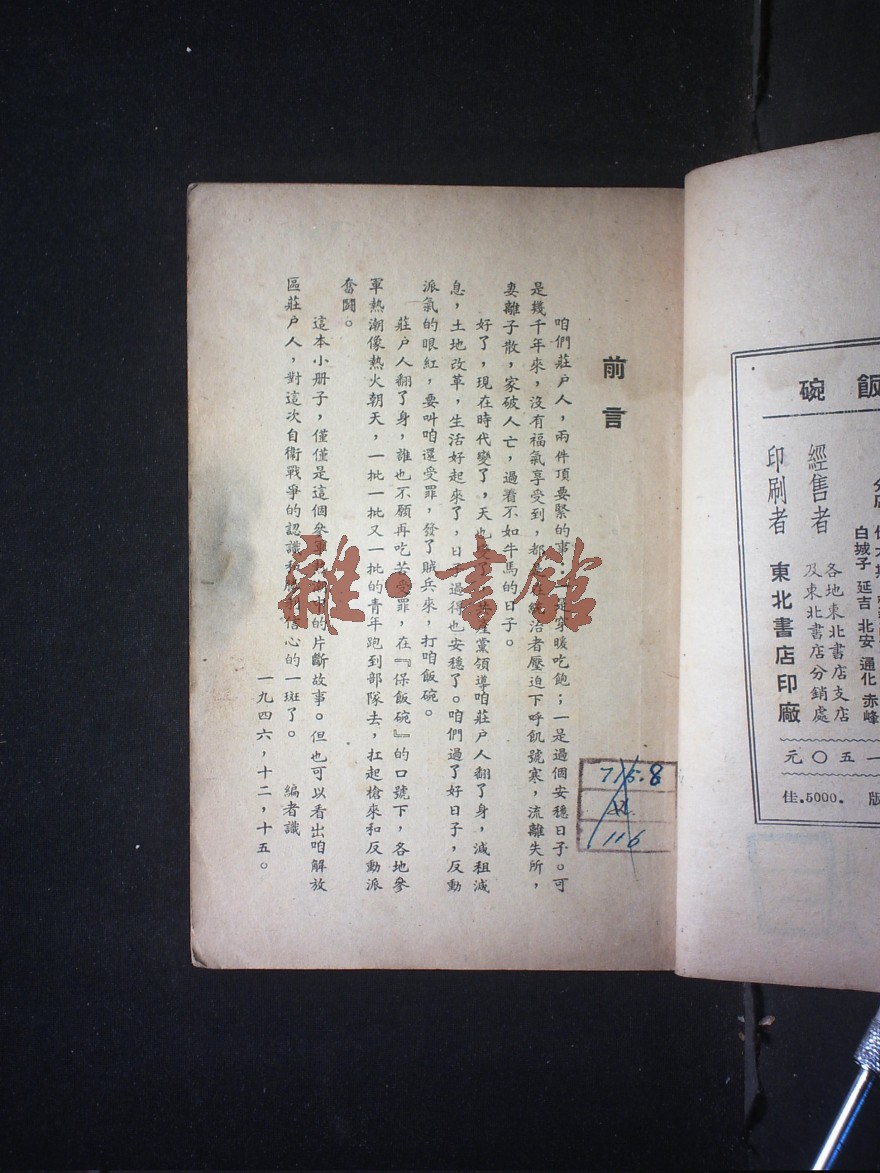 前言
咱們莊戶人，兩件頂要緊的事：一是穿暖吃飽；一是過個安穩日子。可
是幾千年來，沒有福氣享受到，都是在統治者壓迫下呼飢號寒，流離失所，
妻離子散，家破人亡，過着不如牛馬的日子。
好了，現在時代變了，天也變了，共產黨領導咱莊戶人翻了身，減租減
息，土地改革，生活好起來了，日子過得也安穩了。咱們過了好日子，反動
派氣的眼紅，要叫咱還受罪，發了賊兵來，打咱飯碗。
莊戶人翻了身，誰也不願再吃苦受罪，在『保飯碗』的口號下，各地參
軍熱潮像熱火朝天，一批一批又一批的青年跑到部隊去，扛起槍來和反動派
奮鬪。
這本小册子，僅僅是這個參軍熱潮中的片斷故事。但也可以看出咱解放
區莊戶人，對這次自衛戰爭的認識和勝利信心的一斑了。 編者識
一九四六，十二，十五。
雜·書館
715.8
116
飯碗
白城子 延吉 北安 通化 赤峰
經售者 各地東北書店支店
及東北書店分銷處
印刷者 東北書店印廠
一五〇元
版 佳.5000.